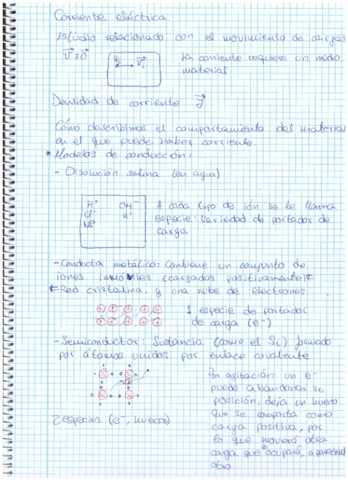 Corriente eléctrica
Estudio relacionado con el movimiento de cargas
v⃗ ≠ 0
La corriente requiere un medio
material
Densidad de corriente J⃗
Cómo describimos el comportamiento del material
en el que puede haber corriente.
* Modelos de conducción:
- Disolución salina (en agua)
H⁺ OH⁻
A cada tipo de ión se le llama
especie: Variedad de portador de
carga
- Conductor metálico: Contiene un conjunto de
iones inmóviles (cargados positivamente)
Red cristalina, y una nube de electrones
1 especie de portador
de carga (e⁻)
- Semiconductor: Sustancia (como el Si) formado
por átomos unidos por enlace covalente
En agitación un e⁻
puede abandonar su
posición, deja un hueco
que se comporta como
carga positiva, por
lo que moverá otra
carga que ocupará, apareciendo
otro
2 especies (e⁻, huecos)